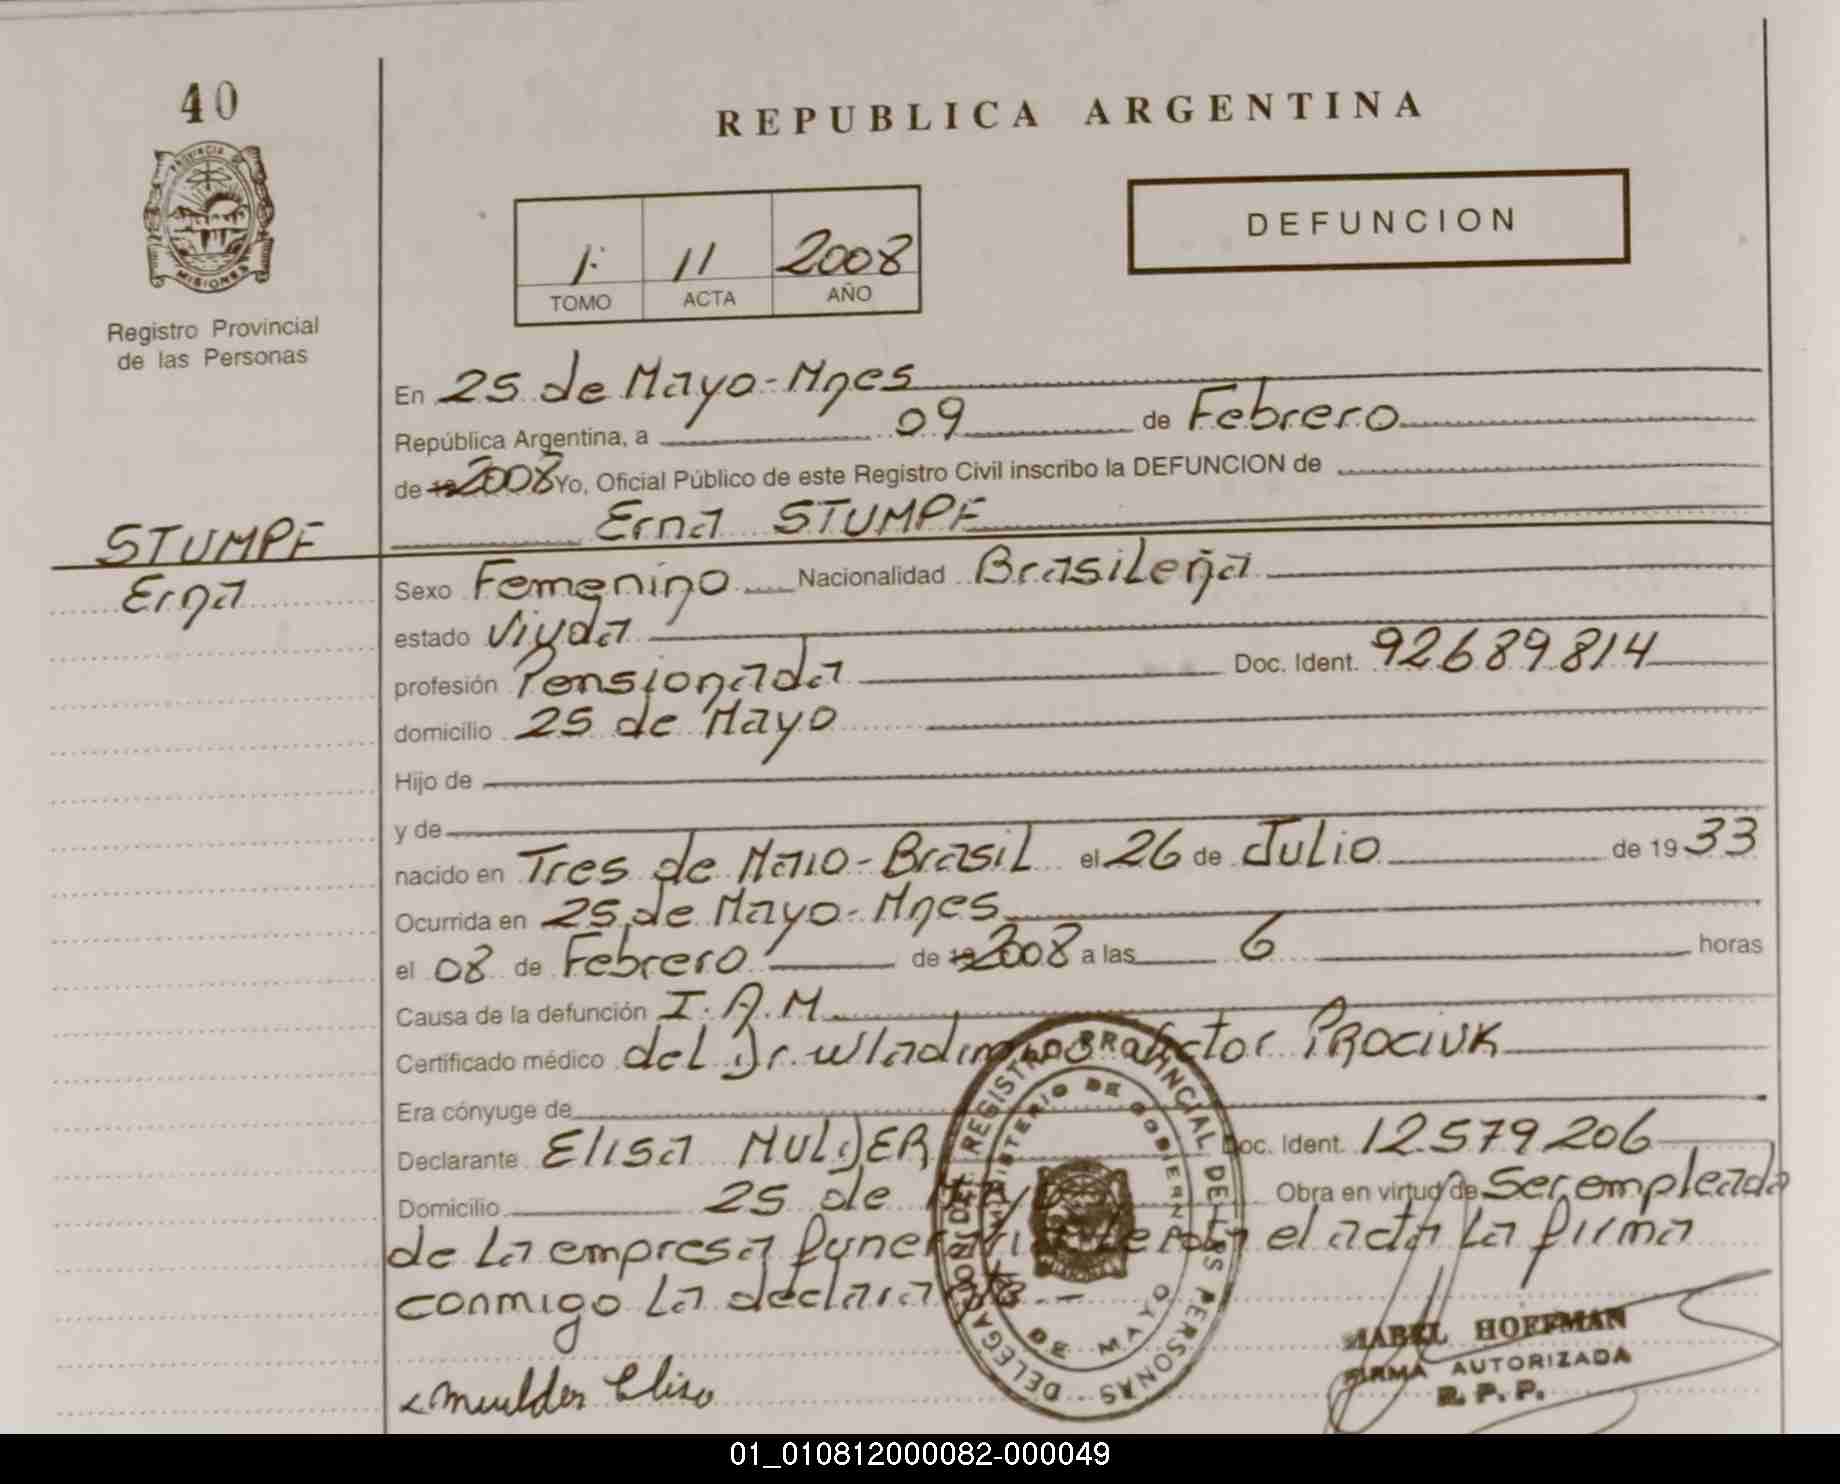 40
PROVINCIA
MISIONES
Registro Provincial
de las Personas
REPUBLICA ARGENTINA
1· 11 2008
TOMO ACTA AÑO
DEFUNCION
En 25 de Mayo - Mnes
República Argentina, a 09 de Febrero
de 19 2008 Yo, Oficial Público de este Registro Civil inscribo la DEFUNCION de
Erna STUMPF
STUMPF
Erna
Sexo Femenino Nacionalidad Brasileña
estado Viuda
profesión Pensionada Doc. Ident. 92689814
domicilio 25 de Mayo
Hijo de
y de
nacido en Tres de Maio - Brasil el 26 de Julio de 19 33
Ocurrida en 25 de Mayo - Mnes
el 08 de Febrero de 19 2008 a las 6 horas
Causa de la defunción I.A.M
Certificado médico del Dr. Wladimiro Hector PROCIUK
Era cónyuge de
Declarante Elisa MULDER Doc. Ident. 12.579.206
Domicilio 25 de Mayo Obra en virtud de Ser empleada
de la empresa funeraria el acta la firma
conmigo la declarante.-
Muulder Elisa
DELEGACION DEL REGISTRO PROVINCIAL DE LAS PERSONAS
MINISTERIO DE GOBIERNO
DE MAYO
MABEL HOFFMAN
FIRMA AUTORIZADA
R. P. P.
01_010812000082-000049